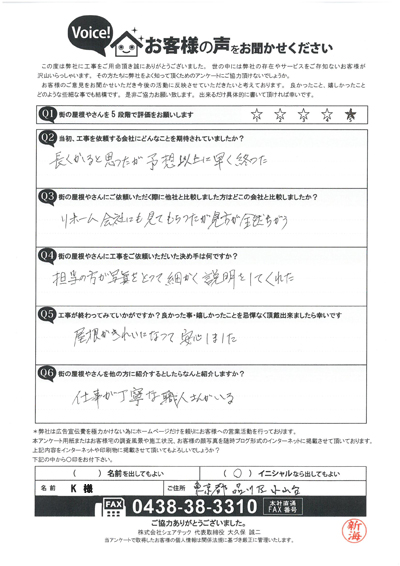 Voice!
お客様の声をお聞かせください
この度は弊社に工事をご用命頂き誠にありがとうございました。世の中には弊社の存在やサービスをご存知ないお客様が
沢山いらっしゃいます。その方たちに弊社をよく知って頂くためのアンケートにご協力頂けないでしょうか。
お客様のご意見をお聞かせいただき今後の活動に反映させていただきたいと考えております。良かったこと、嬉しかったこと
どのような些細な事でも結構です。是非ご協力お願い致します。出来るだけ具体的に書いて頂ければ幸いです。
Q1 街の屋根やさんを5段階で評価をお願いします
☆ ☆ ☆ ☆ ★
Q2 当初、工事を依頼する会社にどんなことを期待されていましたか？
長くかかると思ったが予想以上に早く終った
Q3 街の屋根やさんにご依頼いただく際に他社と比較しました方はどこの会社と比較しましたか？
リホーム会社にも見てもらったが見方が全然ちがう
Q4 街の屋根やさんに工事をご依頼いただいた決め手は何ですか？
担当の方が写真をとって細かく説明をしてくれた
Q5 工事が終わってみていかがですか？良かった事・嬉しかったことを忌憚なく頂戴出来ましたら幸いです
屋根がきれいになって安心しました
Q6 街の屋根やさんを他の方に紹介するとしたらなんと紹介しますか？
仕事が丁寧な職人さんがいる
＊弊社は広告宣伝費を極力かけない為にホームページだけを頼りにお客様への営業活動を行っております。
本アンケート用紙またはお客様宅の調査風景や施工状況、お客様の顔写真を随時ブログ形式のインターネットに掲載させて頂いております。
上記内容をインターネットや印刷物に掲載させて頂いてもよろしいでしょうか？
下記の中から〇印をお付け下さい。
（　）名前を出してもよい （〇）イニシャルなら出してもよい
名前 K 様 ご住所 東京都品川区小山台
FAX 0438-38-3310 本社直通 FAX番号
ご協力ありがとうございました。
株式会社シェアテック 代表取締役 大久保 誠二
当アンケートで取得したお客様の個人情報は関係法規に基づき厳正に管理いたします。
新海